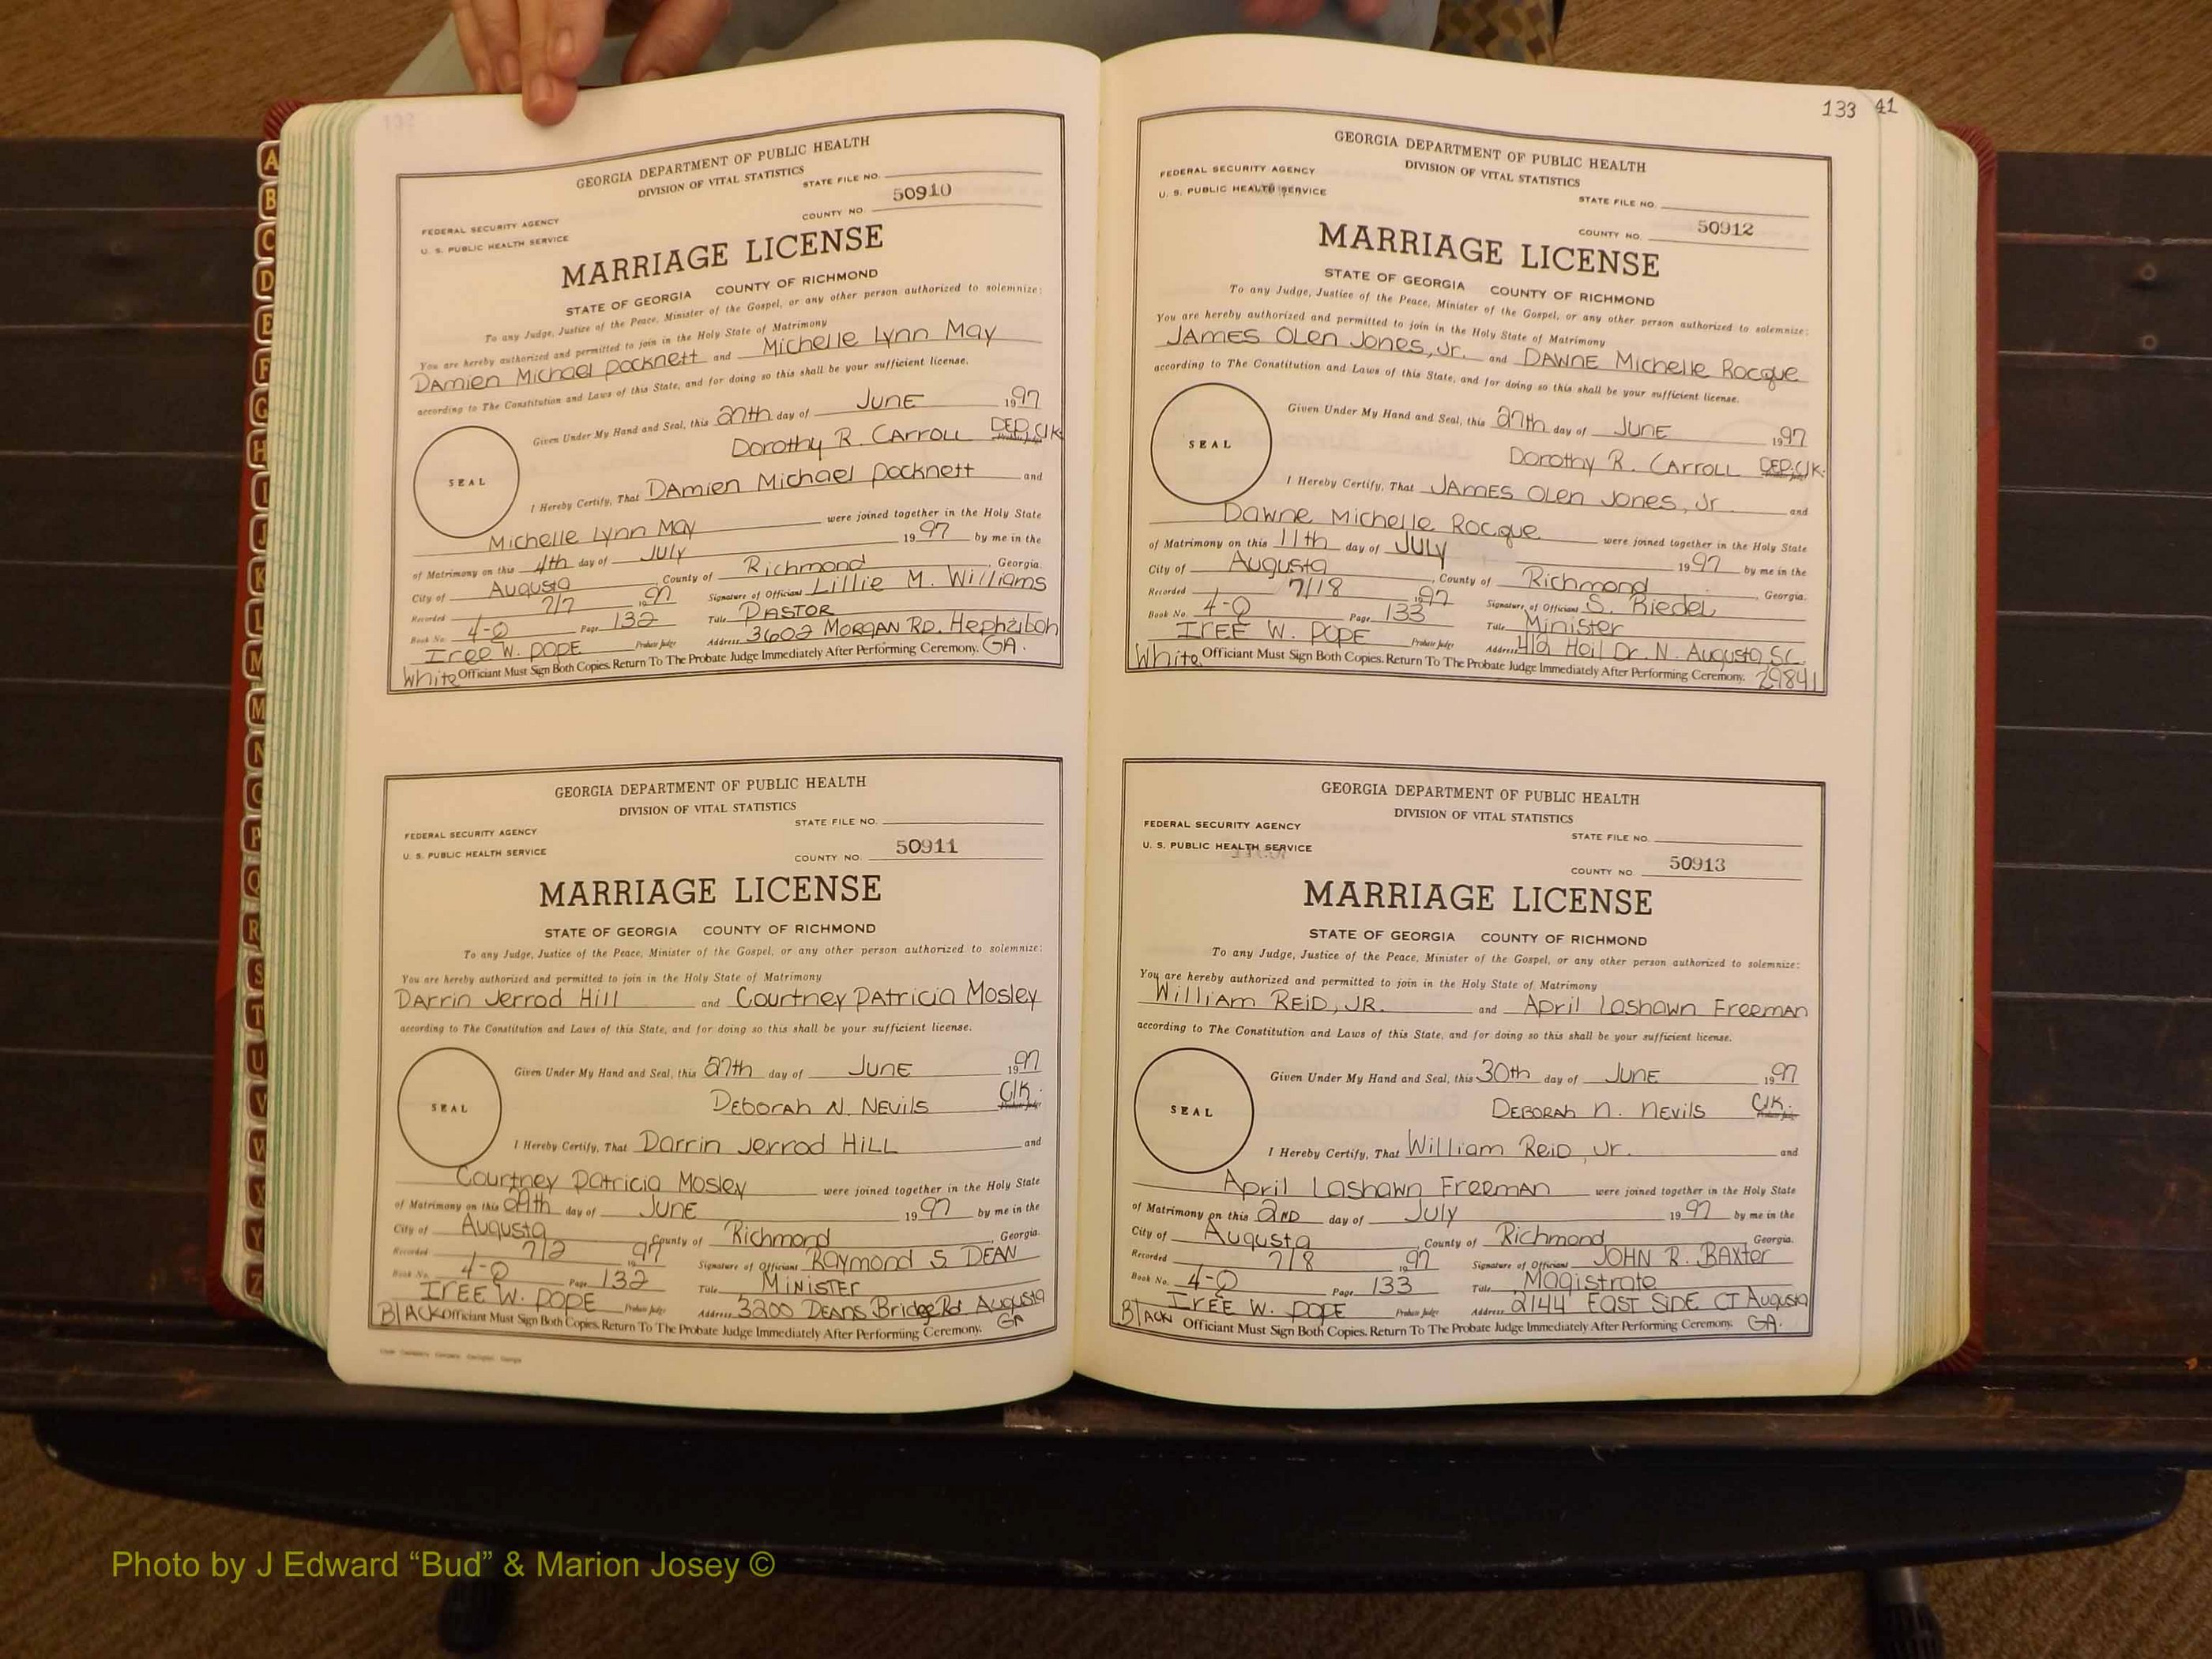 A
B
C
D
E
F
G
H
I
J
K
L
M
M
N
O
P
Q
R
S
T
U
V
W
X
Y
Z
GEORGIA DEPARTMENT OF PUBLIC HEALTH
DIVISION OF VITAL STATISTICS
STATE FILE NO.
FEDERAL SECURITY AGENCY
U. S. PUBLIC HEALTH SERVICE
COUNTY NO. 50910
MARRIAGE LICENSE
STATE OF GEORGIA COUNTY OF RICHMOND
To any Judge, Justice of the Peace, Minister of the Gospel, or any other person authorized to solemnize:
You are hereby authorized and permitted to join in the Holy State of Matrimony
DAmien Michael Pocknett and Michelle Lynn May
according to The Constitution and Laws of this State, and for doing so this shall be your sufficient license.
Given Under My Hand and Seal, this 27th day of JUNE 1997
Dorothy R. CARROLL DEP. Clk.
SEAL
I Hereby Certify, That DAmien Michael Pocknett and
Michelle Lynn May were joined together in the Holy State
of Matrimony on this 4th day of JULY 1997 by me in the
City of Augusta, County of Richmond, Georgia.
Recorded 7/7 1997 Signature of Officiant Lillie M. Williams
Book No. 4-Q Page 132 Title PASTOR
Iree W. POPE Probate Judge Address 3602 MORGAN RD. Hephzibah
White Officiant Must Sign Both Copies. Return To The Probate Judge Immediately After Performing Ceremony. GA.
GEORGIA DEPARTMENT OF PUBLIC HEALTH
DIVISION OF VITAL STATISTICS
STATE FILE NO.
FEDERAL SECURITY AGENCY
U. S. PUBLIC HEALTH SERVICE
COUNTY NO. 50911
MARRIAGE LICENSE
STATE OF GEORGIA COUNTY OF RICHMOND
To any Judge, Justice of the Peace, Minister of the Gospel, or any other person authorized to solemnize:
You are hereby authorized and permitted to join in the Holy State of Matrimony
DArrin Jerrod Hill and Courtney PAtricia Mosley
according to The Constitution and Laws of this State, and for doing so this shall be your sufficient license.
Given Under My Hand and Seal, this 27th day of JUNE 1997
DEborah N. NEvils Clk.
SEAL
I Hereby Certify, That Darrin Jerrod HiLL and
Courtney Patricia Mosley were joined together in the Holy State
of Matrimony on this 29th day of JUNE 1997 by me in the
City of Augusta County of Richmond, Georgia.
Recorded 7/2 1997 Signature of Officiant RAymond S. DEAN
Book No. 4-Q Page 132 Title MiNiSTEr
IrEE W. POPE Probate Judge Address 3200 DEANS Bridge Rd Augusta
BlACK Officiant Must Sign Both Copies. Return To The Probate Judge Immediately After Performing Ceremony. GA
133 41
GEORGIA DEPARTMENT OF PUBLIC HEALTH
DIVISION OF VITAL STATISTICS
FEDERAL SECURITY AGENCY
U. S. PUBLIC HEALTH SERVICE
STATE FILE NO.
COUNTY NO. 50912
MARRIAGE LICENSE
STATE OF GEORGIA COUNTY OF RICHMOND
To any Judge, Justice of the Peace, Minister of the Gospel, or any other person authorized to solemnize:
You are hereby authorized and permitted to join in the Holy State of Matrimony
JAMES OLen Jones, Jr. and DAWNE Michelle Rocque
according to The Constitution and Laws of this State, and for doing so this shall be your sufficient license.
Given Under My Hand and Seal, this 27th day of JUNE 1997
Dorothy R. CARROLL DEP. Clk.
SEAL
I Hereby Certify, That JAMES OLen Jones, Jr and
Dawne Michelle Rocque were joined together in the Holy State
of Matrimony on this 11th day of JULY 1997 by me in the
City of Augusta, County of Richmond, Georgia.
Recorded 7/18 1997 Signature of Officiant S. Riedel
Book No. 4-Q Page 133 Title Minister
IrEE W. POPE Probate Judge Address Dr. N. Augusta SC
White Officiant Must Sign Both Copies. Return To The Probate Judge Immediately After Performing Ceremony. 29841
GEORGIA DEPARTMENT OF PUBLIC HEALTH
DIVISION OF VITAL STATISTICS
FEDERAL SECURITY AGENCY
U. S. PUBLIC HEALTH SERVICE
STATE FILE NO.
COUNTY NO. 50913
MARRIAGE LICENSE
STATE OF GEORGIA COUNTY OF RICHMOND
To any Judge, Justice of the Peace, Minister of the Gospel, or any other person authorized to solemnize:
You are hereby authorized and permitted to join in the Holy State of Matrimony
William REiD, JR. and April Lashawn Freeman
according to The Constitution and Laws of this State, and for doing so this shall be your sufficient license.
Given Under My Hand and Seal, this 30th day of JUNE 1997
DEBORAh N. NEvils Clk.
SEAL
I Hereby Certify, That William ReiD, Jr. and
April Lashawn Freeman were joined together in the Holy State
of Matrimony on this 2ND day of July 1997 by me in the
City of Augusta, County of Richmond Georgia.
Recorded 7/8 1997 Signature of Officiant JOHN R. BAXter
Book No. 4-Q Page 133 Title Magistrate
IrEE W. POPE Probate Judge Address 2144 EAST SiDE CT Augusta
BlACK Officiant Must Sign Both Copies. Return To The Probate Judge Immediately After Performing Ceremony. GA.
Photo by J Edward “Bud” & Marion Josey ©